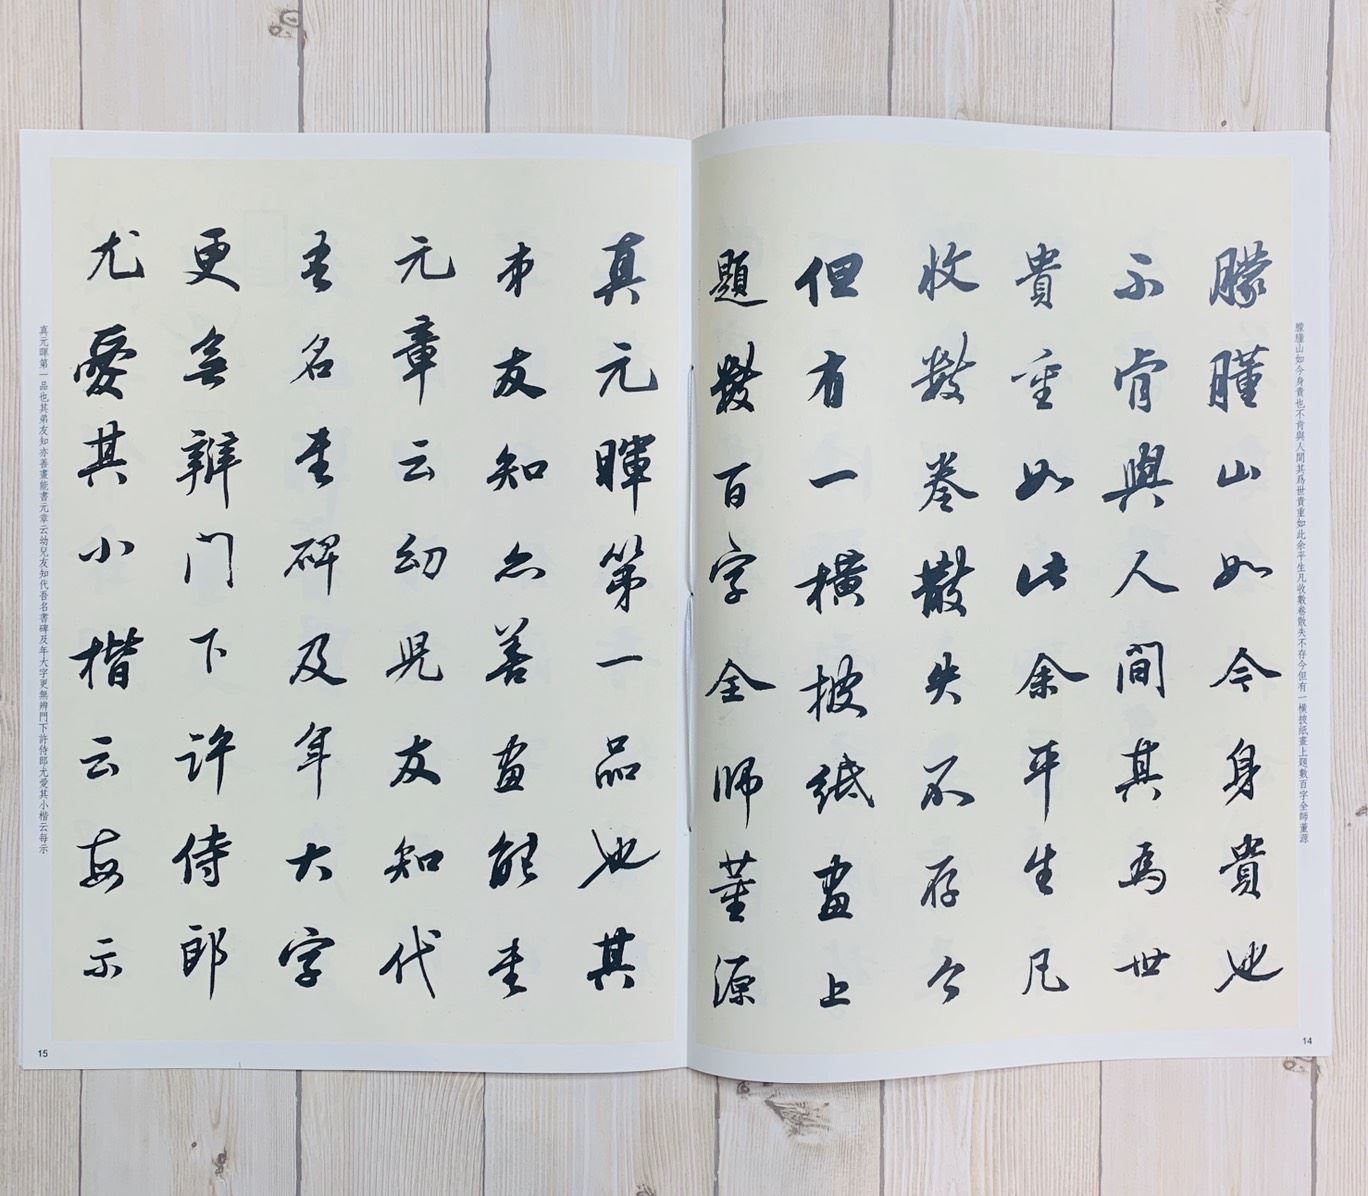 朦朣山如今身貴也不肯與人間其爲世貴重如此余平生凡收數卷散失不存今但有一橫披紙畫上題數百字全師董源
朦朣山如今身貴也
不肯與人間其為世
貴重如此余平生凡
收數卷散失不存今
但有一橫披紙畫上
題數百字全師董源
14
真元暉第一品也其
弟友知亦善畫能書
元章云幼兒友知代
吾名書碑及年大字
更無辨门下許侍郎
尤愛其小楷云每示
真元暉第一品也其弟友知亦善畫能書元章云幼兒友知代吾名書碑及年大字更無辨門下許侍郎尤愛其小楷云每示
15